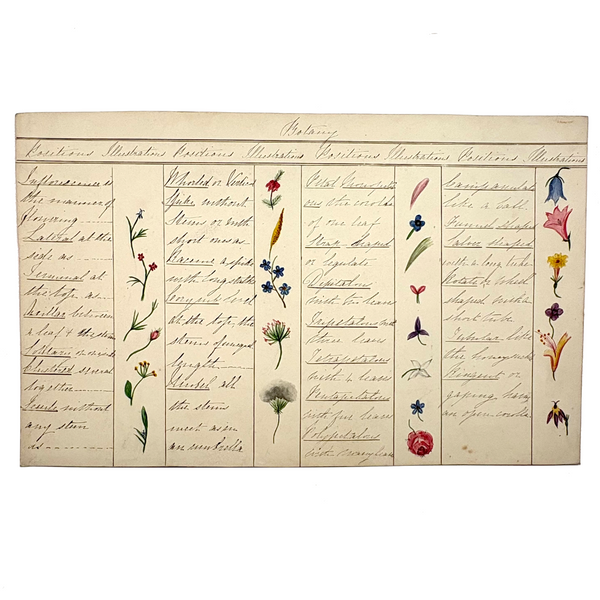 Botany
Positions Illustrations Positions Illustrations Positions Illustrations Positions Illustrations
Inflorescences is
the manner of
flowering
Lateral at the
side as
Terminal at
the top as
Axillar between
a leaf & the stem
Solitary or
Clustered several
together
Sessile without
any stem
as
Whorled or
Spike without
Stems or with
short ones as
Raceme a spike
with long stalks
Corymb level
at the top, the
stems of unequal
length
Umbel all
the stems
meet as in
an umbrella
of one leaf
Strap shaped
or ligulate
Dipetalous
with two leaves
Tripetalous with
three leaves
Tetrapetalous
with 4 leaves
Pentapetalous
with five leaves
Polypetalous
with many leaves
Campanulate
like a bell
Funnel shaped
Salver shaped
with a long tube
Rotate or Wheel
shaped with a
short tube
Tubular like
the honeysuckle
Ringent or
gaping having
an open corolla